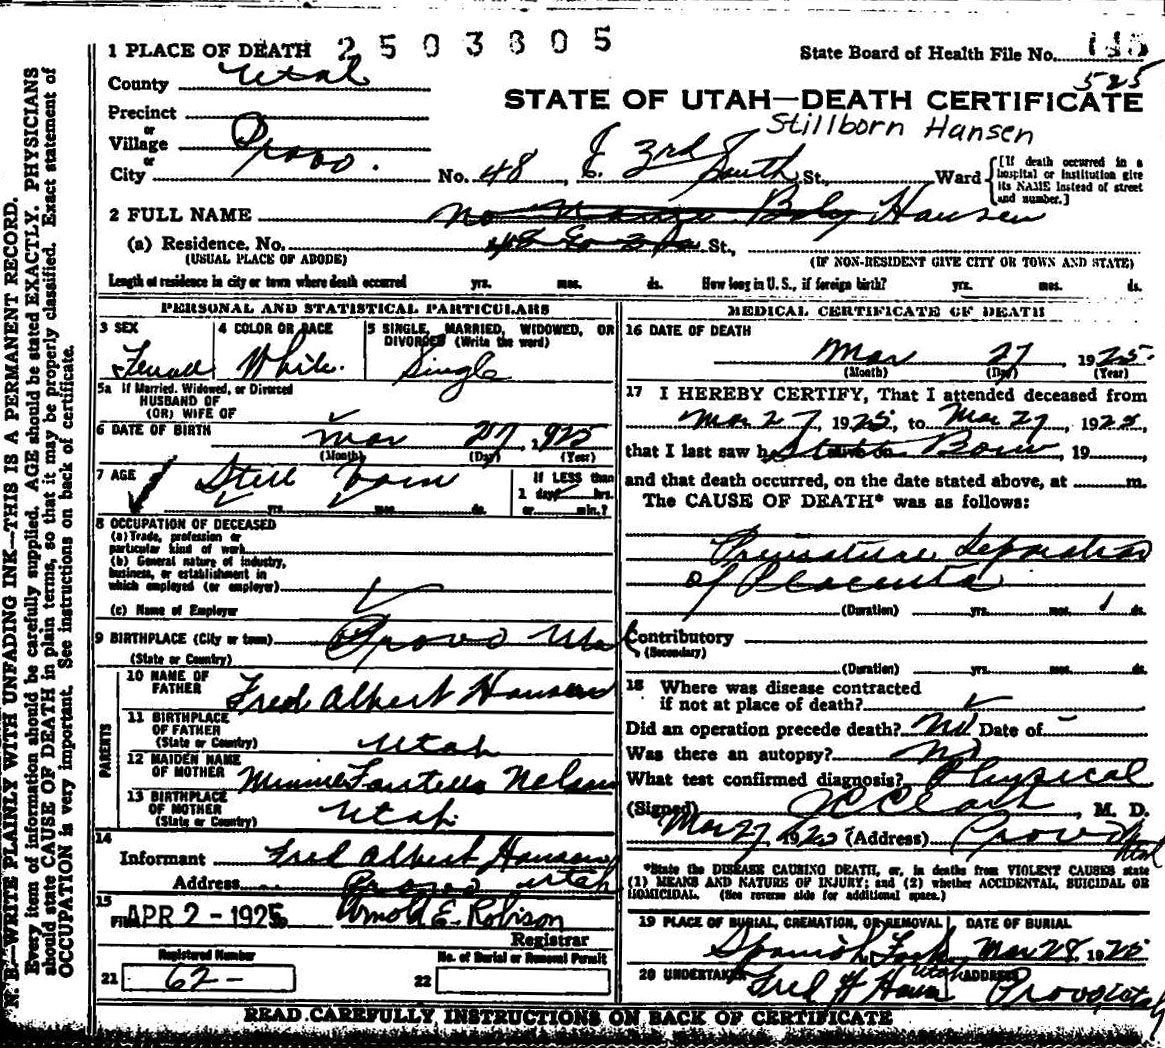 1 PLACE OF DEATH 2503805
State Board of Health File No.
County Utah
525
STATE OF UTAH—DEATH CERTIFICATE
Stillborn Hansen
Precinct
or
Village
or
City Provo. No. 48, E. 3rd South St., Ward
[If death occurred in a hospital or institution give its NAME instead of street and number.]
2 FULL NAME No Name Baby Hansen
(a) Residence. No. 48 St.,
(USUAL PLACE OF ABODE) (IF NON-RESIDENT GIVE CITY OR TOWN AND STATE)
Length of residence in city or town where death occurred yrs. mos. ds. How long in U.S., if foreign birth? yrs. mos. ds.
PERSONAL AND STATISTICAL PARTICULARS
3 SEX 4 COLOR OR RACE 5 SINGLE, MARRIED, WIDOWED, OR
DIVORCED (Write the word)
Female White. Single
5a If Married, Widowed, or Divorced
HUSBAND OF
(OR) WIFE OF
6 DATE OF BIRTH Mar 27, 925
(Month) (Day) (Year)
7 AGE Still born
yrs. mos. ds.
If LESS than
1 day hrs.
or min.?
8 OCCUPATION OF DECEASED
(a) Trade, profession or
particular kind of work
(b) General nature of industry,
business, or establishment in
which employed (or employer)
(c) Name of Employer
9 BIRTHPLACE (City or town) Provo Utah
(State or Country)
PARENTS
10 NAME OF
FATHER Fred Albert Hansen
11 BIRTHPLACE
OF FATHER
(State or Country) Utah
12 MAIDEN NAME
OF MOTHER Minnie Nelson
13 BIRTHPLACE
OF MOTHER
(State or Country) Utah
14
Informant Fred Albert Hansen
Address Provo Utah
15
FILED APR 2 - 1925 Arnold E. Robison
Registrar
Registered Number No. of Burial or Removal Permit
21 62- 22
MEDICAL CERTIFICATE OF DEATH
16 DATE OF DEATH
Mar 27 1925
(Month) (Day) (Year)
17 I HEREBY CERTIFY, That I attended deceased from
Mar 27, 1925, to Mar 27, 1925,
that I last saw h Born, 19
and that death occurred, on the date stated above, at m.
The CAUSE OF DEATH* was as follows:
Premature Separation
of Placenta
(Duration) yrs. mos. 1 ds.
Contributory
(Secondary)
(Duration) yrs. mos. ds.
18 Where was disease contracted
if not at place of death?
Did an operation precede death? No Date of -
Was there an autopsy? No
What test confirmed diagnosis? Physical
(Signed) J C Clark, M. D.
Mar 27 1925 (Address) Provo Utah
*State the DISEASE CAUSING DEATH, or, in deaths from VIOLENT CAUSES state
(1) MEANS AND NATURE OF INJURY; and (2) whether ACCIDENTAL, SUICIDAL OR
HOMICIDAL. (See reverse side for additional space.)
19 PLACE OF BURIAL, CREMATION, OR REMOVAL DATE OF BURIAL
Spanish Fork, Utah Mar 28, 1925
20 UNDERTAKER ADDRESS
Fred A Hansen Provo Utah
READ CAREFULLY INSTRUCTIONS ON BACK OF CERTIFICATE
N. B.—WRITE PLAINLY WITH UNFADING INK—THIS IS A PERMANENT RECORD.
Every item of information should be carefully supplied. AGE should be stated EXACTLY. PHYSICIANS
should state CAUSE OF DEATH in plain terms, so that it may be properly classified. Exact statement of
OCCUPATION is very important. See instructions on back of certificate.